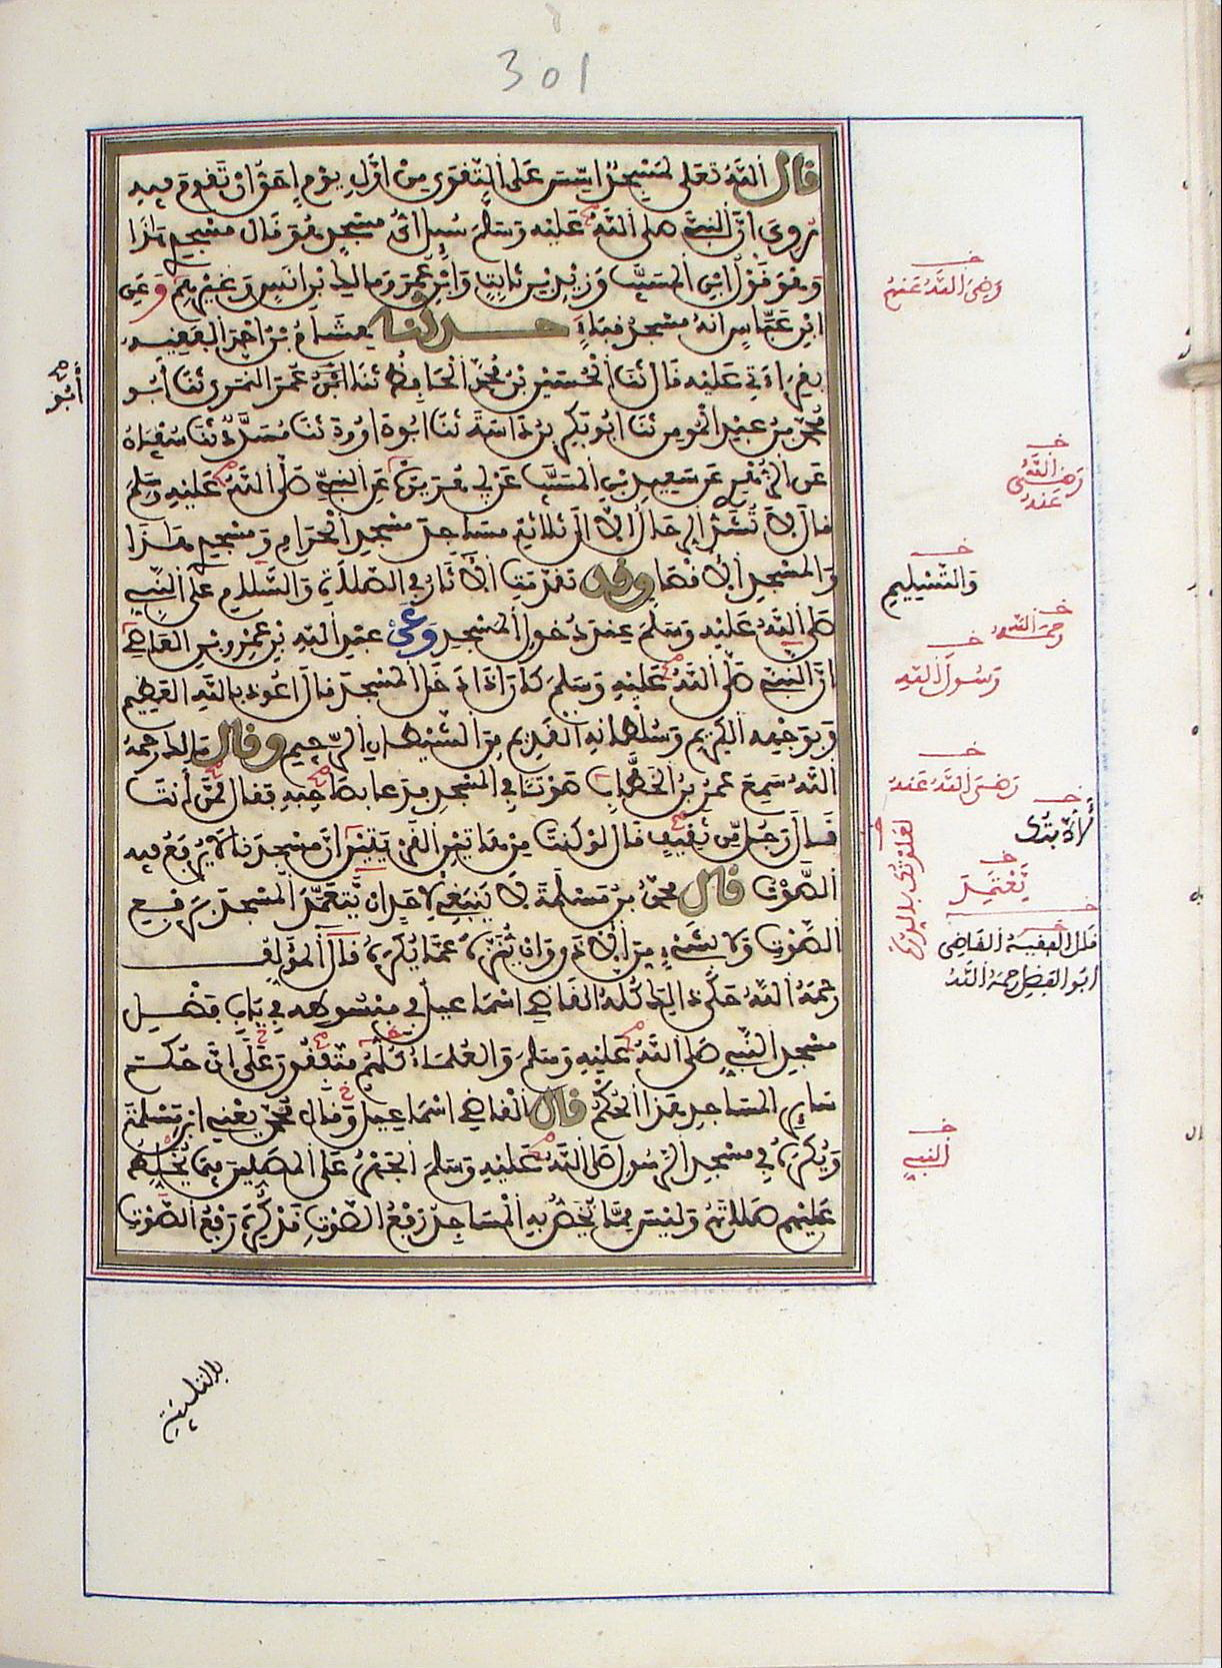 301
قال الله تعلى لمسجد اسس على التقوى من اول يوم احق ان تقوم فيه
روي ان النبي صلى الله عليه وسلم سيل اي مسجد هو قال مسجدي هذا
وهو قول ابن المسيب وزيد بن ثابت وابن عمر ومالك بن انس وغيرهم وعن
ابن عباس انه مسجد قباء حدثنا هشام بن احمد الفقيه
بقراءتي عليه قال ثنا الحسين بن محمد الحافظ ثنا ابو عمر النمري ثنا ابو
محمد بن عبد المومن ثنا ابو بكر بن داسة ثنا ابو داوود ثنا مسدد ثنا سفيان
عن الزهري عن سعيد بن المسيب عن ابي هريرة عن النبي صلى الله عليه وسلم
قال لا تشد الرحال الا الى ثلاثة مساجد مسجد الحرام ومسجدي هذا
والمسجد الاقصا وقد تقدمت الاثار في الصلاة والسلام على النبي
صلى الله عليه وسلم عند دخول المسجد وعن عبد الله بن عمرو بن العاصي
ان النبي صلى الله عليه وسلم كان اذا دخل المسجد قال اعوذ بالله العظيم
وبوجهه الكريم وسلطانه القديم من الشيطان الرجيم وقال مالك رحمه
الله سمع عمر بن الخطاب صوتا في المسجد فدعا بصاحبه فقال ممن أنت
قال رجل من ثقيف قال لو كنت من هاتين القريتين ان مسجدنا لا يرفع فيه
الصوت قال محمد بن مسلمة لا ينبغي لاحد ان يتعمد المسجد برفع
الصوت ولا بشيء من الاذى وان ينزه عما يكره قال المؤلف
رحمه الله حكى ذالك كله القاضي اسماعيل في مبسوطه في باب فضل
مسجد النبي صلى الله عليه وسلم والعلماء كلهم متفقون على ان حكم
ساير المساجد هذا الحكم قال القاضي اسماعيل وقال محمد يعني ابن مسلمة
ويكره في مسجد الرسول صلى الله عليه وسلم الجهر على المصلين فيما يخلط
عليهم صلاتهم وليس مما يخص به المساجد رفع الصوت قد كره رفع الصوت
رضي الله عنهم
أبو
رضي الله
عنه
والتسليم
رحمه الله
رسول الله
رضي الله عنه
لأدبتك
يعتمد
قال الفقيه القاضي
ابو الفضل رحمه الله
النبي
بالتلبية